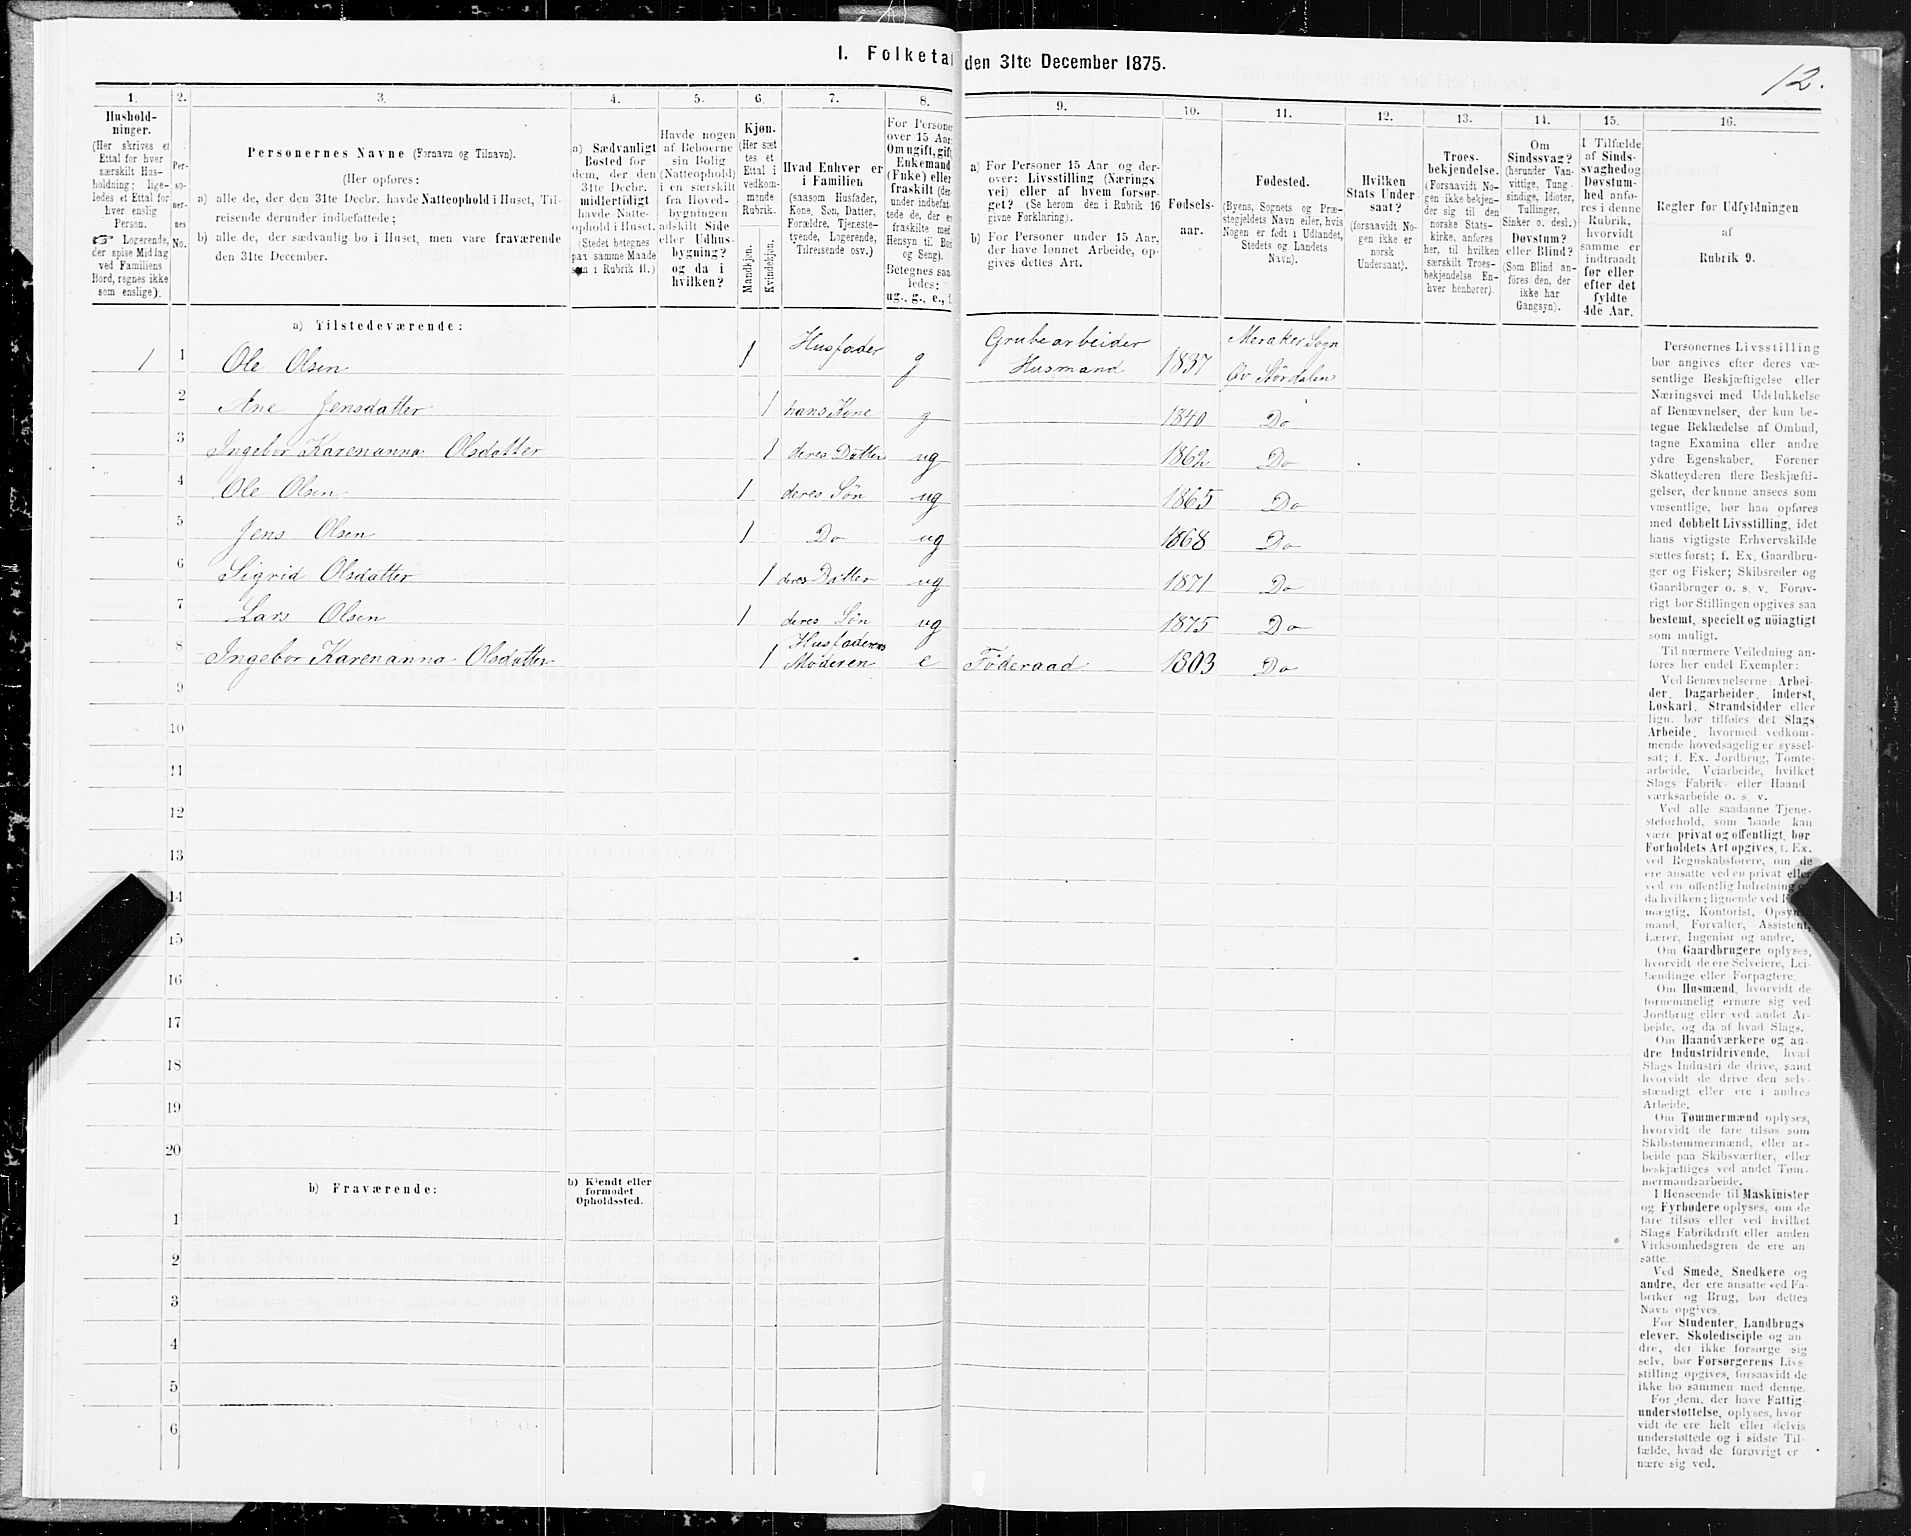 I. Folketal den 31te December 1875.
12.
1.
Hushold-
ninger.
(Her skrives et
Ettal for hver
særskilt Hus-
holdning; lige-
ledes et Ettal for
hver enslig
Person.
☞ Logerende,
der spise Middag
ved Familiens
Bord, regnes ikke
som enslige).
2.
Per-
so-
ner-
nes
No.
3.
Personernes Navne (Fornavn og Tilnavn).
(Her opføres:
a) alle de, der den 31te Decbr. havde Natteophold i Huset, Til-
reisende derunder indbefattede;
b) alle de, der sædvanlig bo i Huset, men vare fraværende
den 31te December.
4.
a) Sædvanligt
Bosted for
dem, der den
31te Decbr.
midlertidigt
havde Natte-
ophold i Huset.
(Stedet betegnes
paa samme Maade
som i Rubrik 11.)
5.
Havde nogen
af Beboerne
sin Bolig
(Natteophold)
i en særskilt
fra Hoved-
bygningen
adskilt Side-
eller Udhus-
bygning?
og da i
hvilken?
6.
Kjøn.
(Her sæt-
tes et
Ettal i
vedkom-
mende
Rubrik.
Mandkjøn.
Kvindekjøn.
7.
Hvad Enhver er
i Familien
(saasom Husfader,
Kone, Søn, Datter,
Forældre, Tjeneste-
tyende, Logerende,
Tilreisende osv.)
8.
For Personer
over 15 Aar:
Om ugift, gift,
Enkemand
(Enke) eller
fraskilt (der-
under indbefat-
tede de, der ere
fraskilte med
Hensyn til Bord
og Seng).
Betegnes saa-
ledes:
ug., g., e., f.
9.
a) For Personer 15 Aar og der-
over: Livsstilling (Nærings-
vei) eller af hvem forsør-
get? (Se herom den i Rubrik 16
givne Forklaring).
b) For Personer under 15 Aar,
der have lønnet Arbeide, op-
gives dettes Art.
10.
Fødsels-
aar.
11.
Fødested.
(Byens, Sognets og Præ-
stegjeldets Navn eller, hvis
Nogen er født i Udlandet,
Stedets og Landets
Navn).
12.
Hvilken
Stats Under-
saat?
(forsaavidt No-
gen ikke er
norsk
Undersaat).
13.
Troes-
bekjendelse.
(Forsaavidt No-
gen ikke bekjen-
der sig til den
norske Stats-
kirke, anføres
her, til hvilken
særskilt Troes-
bekjendelse En-
hver henhører).
14.
Om
Sindssvag?
(herunder Van-
vittige, Tung-
sindige, Idioter,
Tullinger,
Sinker o. desl.)
Døvstum?
eller Blind?
(Som Blind an-
føres den, der
ikke har
Gangsyn).
15.
I Tilfælde
af Sinds-
svaghed og
Døvstum-
hed anfø-
res i denne
Rubrik,
hvorvidt
samme er
indtraadt
før eller
efter det
fyldte
4de Aar.
16.
Regler for Udfyldningen
af
Rubrik 9.
a) Tilstedeværende:
1 1 Ole Olsen 1 Husfader g Grubearbeider Husmand 1837 Meraker Sogn Øv Størdalen
2 Ane Jensdatter 1 hans Kone g 1840 Do
3 Ingebor Karenanna Olsdatter 1 deres Datter ug 1862 Do
4 Ole Olsen 1 deres Søn ug 1865 Do
5 Jens Olsen 1 Do ug 1868 Do
6 Sigrid Olsdatter 1 deres Datter ug 1871 Do
7 Lars Olsen 1 deres Søn ug 1875 Do
8 Ingebor Karenanna Olsdatter 1 Husfaderens Moderen e Føderaad 1803 Do
9
10
11
12
13
14
15
16
17
18
19
20
b) Fraværende:
b) Kjendt eller
formodet
Opholdssted.
1
2
3
4
5
6
Personernes Livsstilling
bør angives efter deres væ-
sentlige Beskjæftigelse eller
Næringsvei med Udelukkelse
af Benævnelser, der kun be-
tegne Beklædelse af Ombud,
tagne Examina eller andre
ydre Egenskaber. Forener
Skatteyderen flere Beskjæfti-
gelser, der kunne ansees som
væsentlige, bør han opføres
med dobbelt Livsstilling, idet
hans vigtigste Erhvervskilde
sættes først; f. Ex. Gaardbru-
ger og Fisker; Skibsreder og
Gaardbruger o. s. v. Forøv-
rigt bør Stillingen opgives saa
bestemt, specielt og nøiagtigt
som muligt.
Til nærmere Veiledning an-
føres her endel Exempler:
Ved Benævnelserne: Arbei-
der, Dagarbeider, Inderst,
Løskarl, Strandsidder eller
lign. bør tilføies det Slags
Arbeide, hvormed vedkom-
mende hovedsagelig er syssel-
sat; f. Ex. Jordbrug, Tomte-
arbeide, Veiarbeide, hvilket
Slags Fabrik- eller Haand-
værksarbeide o. s. v.
Ved alle saadanne Tjene-
steforhold, som baade kan
være privat og offentligt, bør
Forholdets Art opgives, f. Ex.
ved Regnskabsførere, om de
ere ansatte ved en privat eller
ved en offentlig Indretning og
da hvilken; lignende ved Fuld-
mægtig, Kontorist, Opsyns-
mand, Forvalter, Assistent,
Lærer, Ingeniør og andre.
Om Gaardbrugere oplyses,
hvorvidt de ere Selveiere, Lei-
lændinge eller Forpagtere.
Om Husmænd, hvorvidt de
fornemmelig ernære sig ved
Jordbrug eller ved andet Ar-
beide, og da af hvad Slags.
Om Haandværkere og an-
dre Industridrivende, hvad
Slags Industri de drive, samt
hvorvidt de drive den selv-
stændigt eller ere i andres
Arbeide.
Om Tømmermænd oplyses,
hvorvidt de fare tilsøs som
Skibstømmermænd, eller ar-
beide paa Skibsværfter, eller
beskjæftiges ved andet Tøm-
mermandsarbeide.
I Henseende til Maskinister
og Fyrbødere oplyses, om de
fare tilsøs eller ved hvilket
Slags Fabrikdrift eller anden
Virksomhedsgren de ere an-
satte.
Ved Smede, Snedkere og
andre, der ere ansatte ved Fa-
briker og Brug, bør dettes
Navn opgives.
For Studenter, Landbrugs-
elever, Skoledisciple og an-
dre, der ikke forsørge sig
selv, bør Forsørgerens Livs-
stilling opgives, forsaavidt de
ikke bo sammen med denne.
For dem, der have Fattig-
understøttelse, oplyses, hvor-
vidt de ere helt eller delvis
understøttede og i sidste Til-
fælde, hvad de forøvrigt er-
nære sig ved.